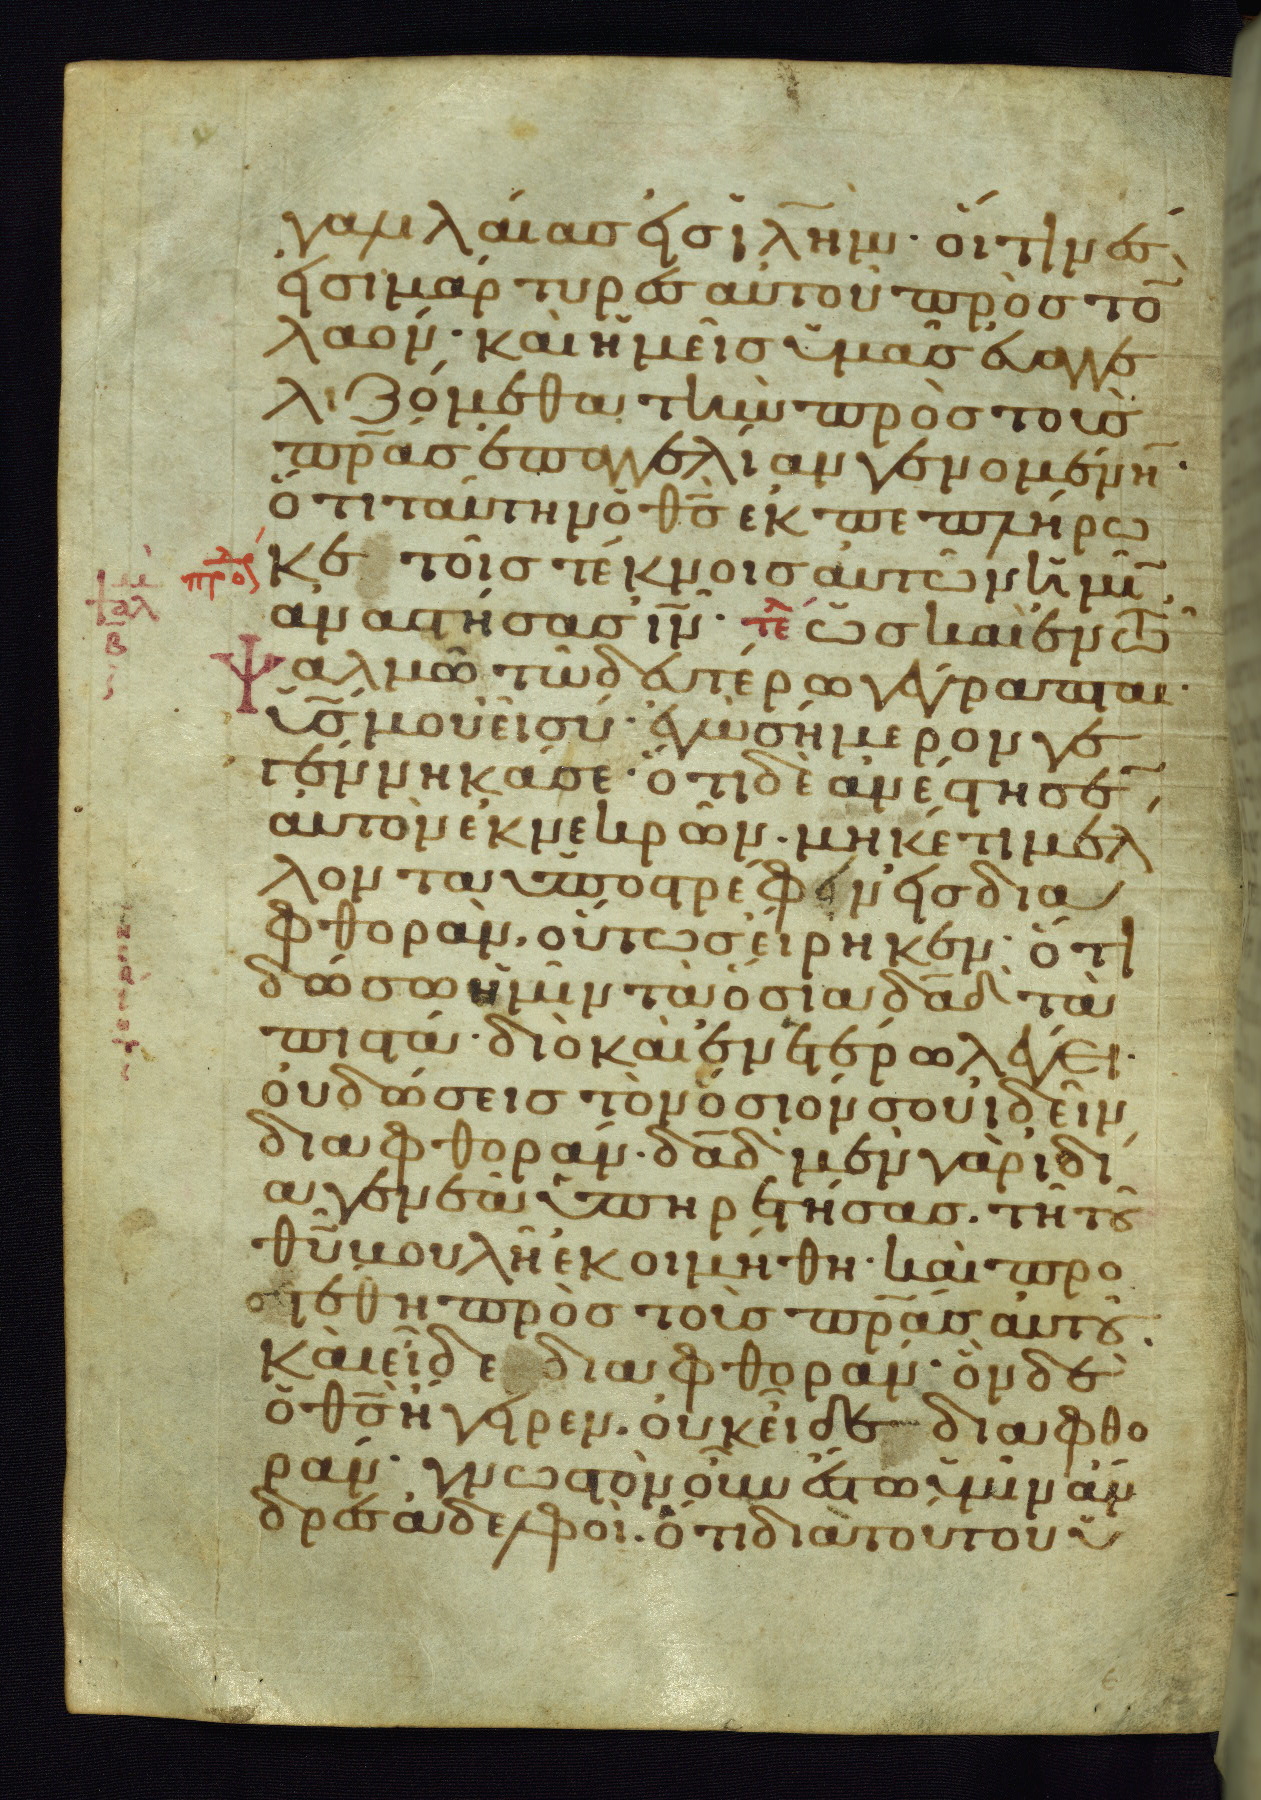 γαλιλαίας εἰς ἰλ̅η̅μ· οἵτινες
εἰσι μάρτυρες αὐτοῦ πρὸς το̅
λαόν· καὶ ἡμεῖς ὑμᾶς εὐαγγε
λιζόμεθα τὴν πρὸς τοὺς
πρ̅ας ἐπαγγελίαν γενομένη̅·
ὅτι ταύτην ὁ θ̅ς ἐκπεπλήρω
κε τοῖς τέκνοις αὐτῶν ἡμῖ̅
ἀναστήσας ἰ̅ν· τέλ ὡς καὶ ἐν τῶ
Ψαλμῶ τῶ δευτέρω γέγραπται·
υ̅ς μου εἶ σύ· ἐγὼ σήμερον γε
γέννηκά σε· ὅτι δὲ ἀνέστησε̅
αὐτὸν ἐκ νεκρῶν. μηκέτι μέλ
λοντα ὑποστρέφειν εἰς δια
φθορὰν, οὕτως εἴρηκεν· ὅτι
δώσω ὑμῖν τὰ ὅσια δα̅δ τὰ
πιστά· διὸ καὶ ἐν ἑτέρω λέγει·
οὐ δώσεις τὸν ὅσιόν σου ἰδεῖν
διαφθοράν· δα̅δ μὲν γὰρ ἰδί
α γενεᾶ ὑπηρετήσας. τῆ τοῦ
θ̅υ βουλῆ ἐκοιμήθη· καὶ προ
σετέθη πρὸς τοὺς πρ̅ας αὐτοῦ.
καὶ εἶδε διαφθοράν· ὃν δὲ
ὁ θ̅ς ἤγειρεν. οὐκ εἶδε διαφθο
ράν· γνωστὸν οὖν ἔστω ὑμῖν ἄν
δρες ἀδελφοὶ. ὅτι διὰ τούτου ὑ